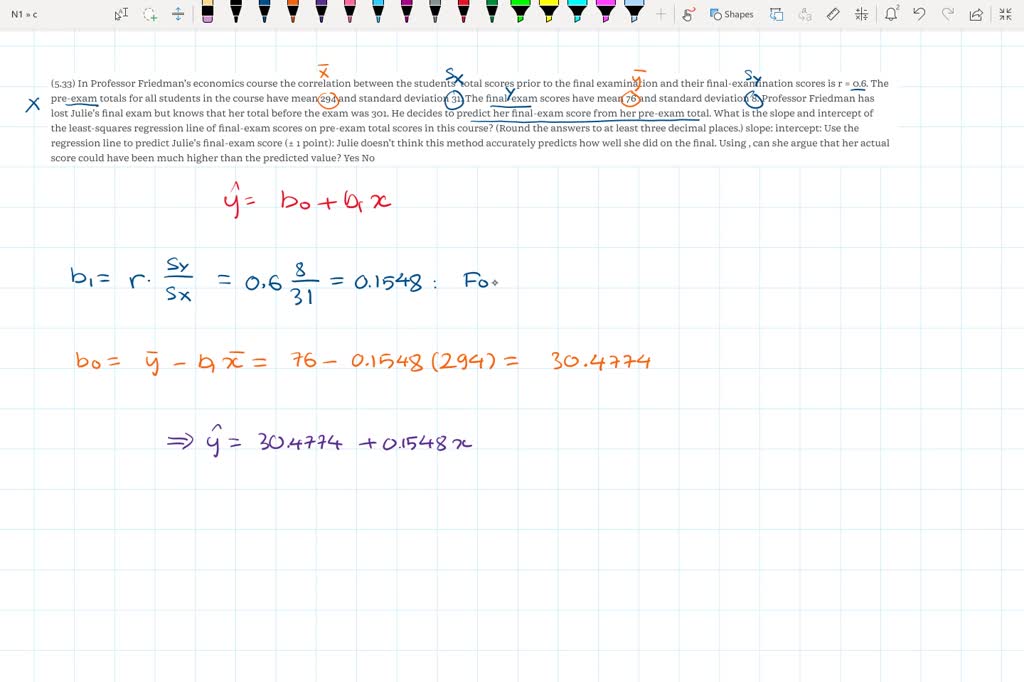 N1 » c
Shapes
2
x̄ Sx ȳ Sy
(5.33) In Professor Friedman's economics course the correlation between the students' total scores prior to the final examination and their final-examination scores is r = 0.6. The
y
X pre-exam totals for all students in the course have mean 294 and standard deviation 31. The final-exam scores have mean 76 and standard deviation 8. Professor Friedman has
lost Julie's final exam but knows that her total before the exam was 301. He decides to predict her final-exam score from her pre-exam total. What is the slope and intercept of
the least-squares regression line of final-exam scores on pre-exam total scores in this course? (Round the answers to at least three decimal places.) slope: intercept: Use the
regression line to predict Julie's final-exam score (± 1 point): Julie doesn't think this method accurately predicts how well she did on the final. Using , can she argue that her actual
score could have been much higher than the predicted value? Yes No
ŷ = b0 + b1 x
b1 = r. Sy/Sx = 0.6 8/31 = 0.1548 : Fo
b0 = ȳ - b1 x̄ = 76 - 0.1548 (294) = 30.4774
⇒ ŷ = 30.4774 + 0.1548 x